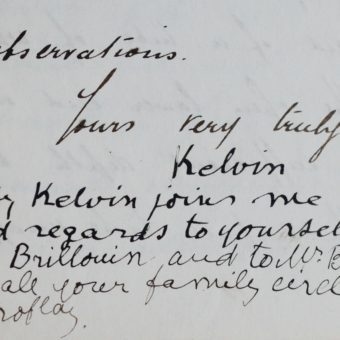 observations.
Yours very truly
Kelvin
Kelvin joins me
regards to yourself
Brillouin and to Mr. B
all your family circl